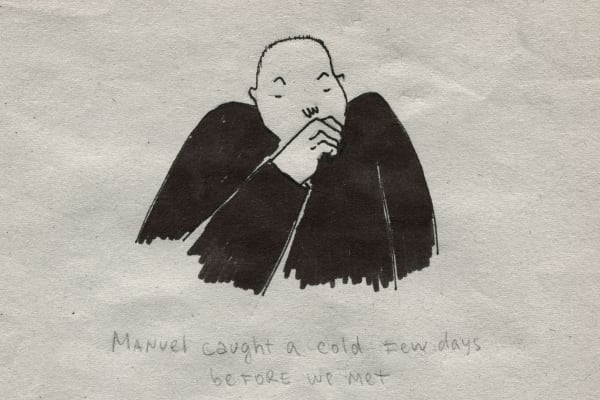 MANuel caught a cold Few days
beFORE we met